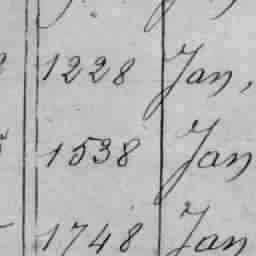 1228 Jan,
1538 Jan
1748 Jan